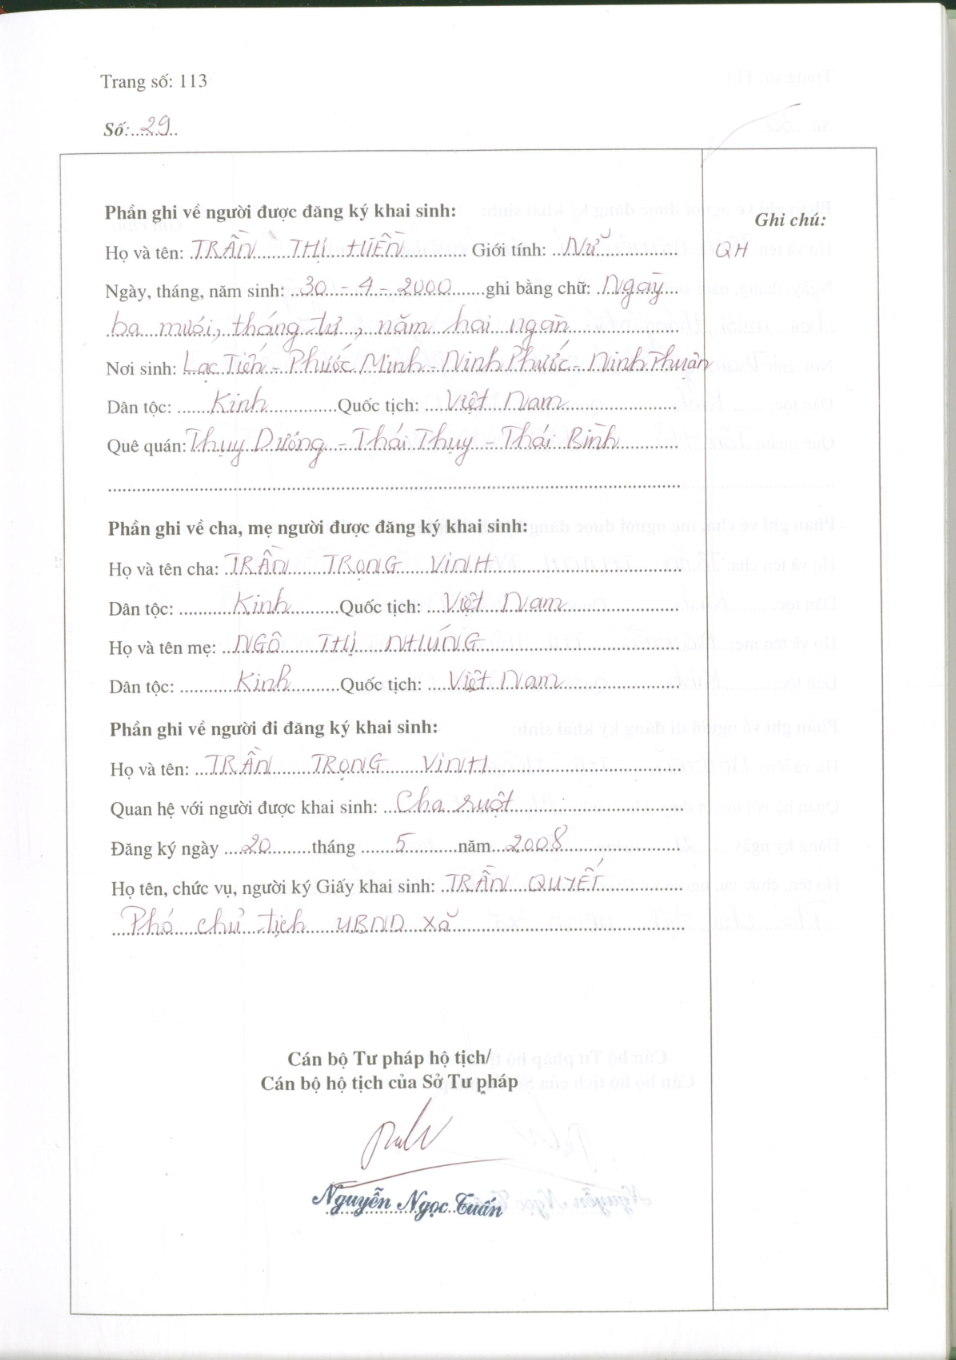 Trang số: 113
Số: 29
Phần ghi về người được đăng ký khai sinh:
Ghi chú:
Họ và tên: TRẦN THỊ HIỀN Giới tính: Nữ
QH
Ngày, tháng, năm sinh: 30 - 4 - 2000 ghi bằng chữ: Ngày
ba mươi, tháng tư, năm hai ngàn
Nơi sinh: Lạc Tiến - Phước Minh - Ninh Phước - Ninh Thuận
Dân tộc: Kinh Quốc tịch: Việt Nam
Quê quán: Thụy Dương - Thái Thụy - Thái Bình
Phần ghi về cha, mẹ người được đăng ký khai sinh:
Họ và tên cha: TRẦN TRỌNG VINH
Dân tộc: Kinh Quốc tịch: Việt Nam
Họ và tên mẹ: NGÔ THỊ NHUNG
Dân tộc: Kinh Quốc tịch: Việt Nam
Phần ghi về người đi đăng ký khai sinh:
Họ và tên: TRẦN TRỌNG VINH
Quan hệ với người được khai sinh: Cha ruột
Đăng ký ngày 20 tháng 5 năm 2008
Họ tên, chức vụ, người ký Giấy khai sinh: TRẦN QUYẾT
Phó chủ tịch UBND xã
Cán bộ Tư pháp hộ tịch/
Cán bộ hộ tịch của Sở Tư pháp
Nguyễn Ngọc Tuấn